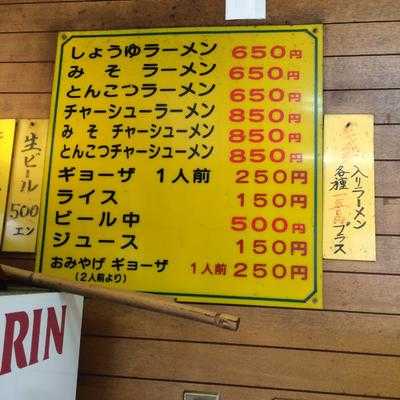 しょうゆラーメン 650円
みそ ラーメン 650円
とんこつラーメン 650円
チャーシューラーメン 850円
みそ チャーシューメン 850円
とんこつチャーシューメン 850円
ギョーザ 1人前 250円
ライス 150円
ビール中 500円
ジュース 150円
おみやげ ギョーザ 1人前 250円
(2人前より)
生ビール
500
エン
入りラーメン
各種
プラス
RIN